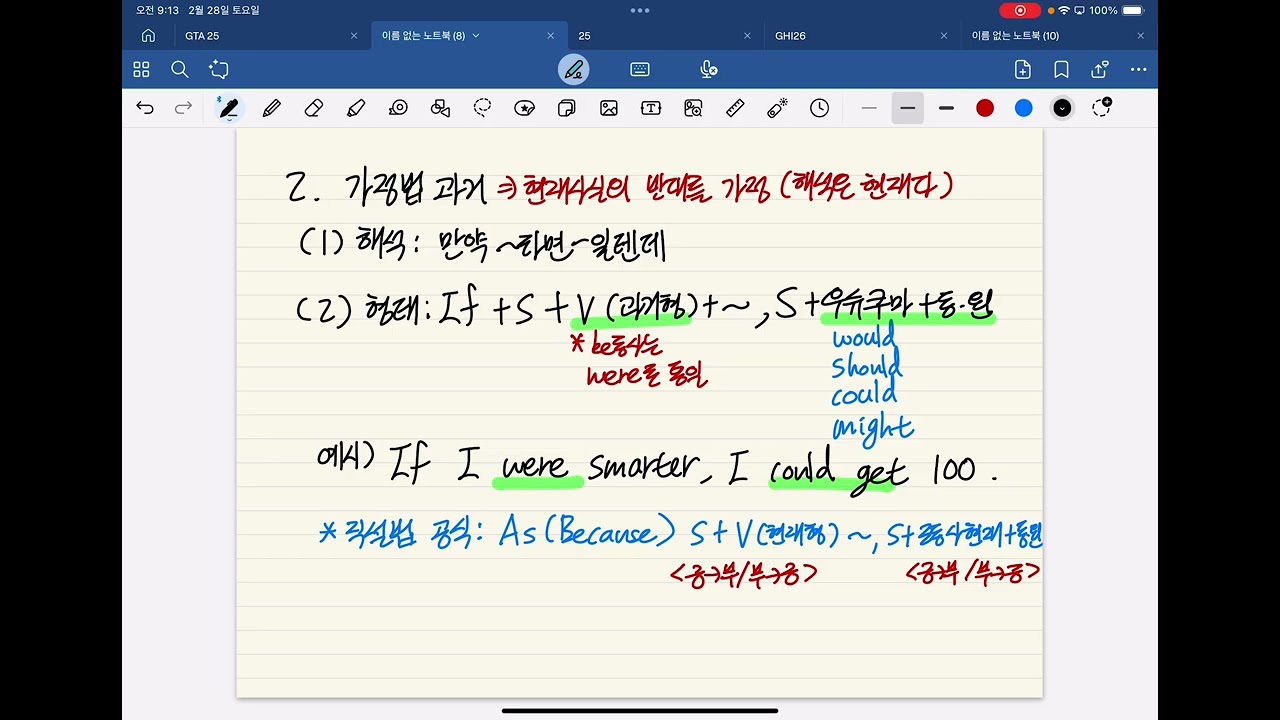 오전 9:13 2월 28일 토요일
100%
GTA 25
이름 없는 노트북 (8)
25
GHI26
이름 없는 노트북 (10)
2. 가정법 과거 ⇒ 현재사실의 반대를 가정 (해석은 현재다)
(1) 해석: 만약 ~라면 ~일텐데
(2) 형태: If + S + V (과거형) + ~, S + 우슈쿠마 + 동.원
* be동사는
were로 통일
would
should
could
might
예시) If I were smarter, I could get 100.
* 직설법 공식: As (Because) S + V (현재형) ~, S + 조동사현재 + 동원
<긍→부/부→긍>
<긍→부/부→긍>